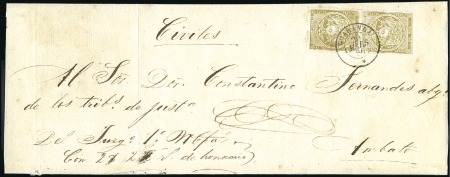 Civiles
Al Sor. Dor. Constantino Fernandes abgo.
de los tribs. de justa.
Del Juzgo 1o. Mpal.
Con 27 S. de honrars)
Ambato